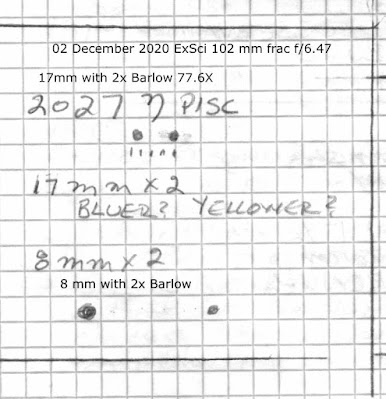 02 December 2020 ExSci 102 mm frac f/6.47
17mm with 2x Barlow 77.6X
2027 η PISC
17mm x 2
BLUER? YELLOWER?
8mm x 2
8 mm with 2x Barlow